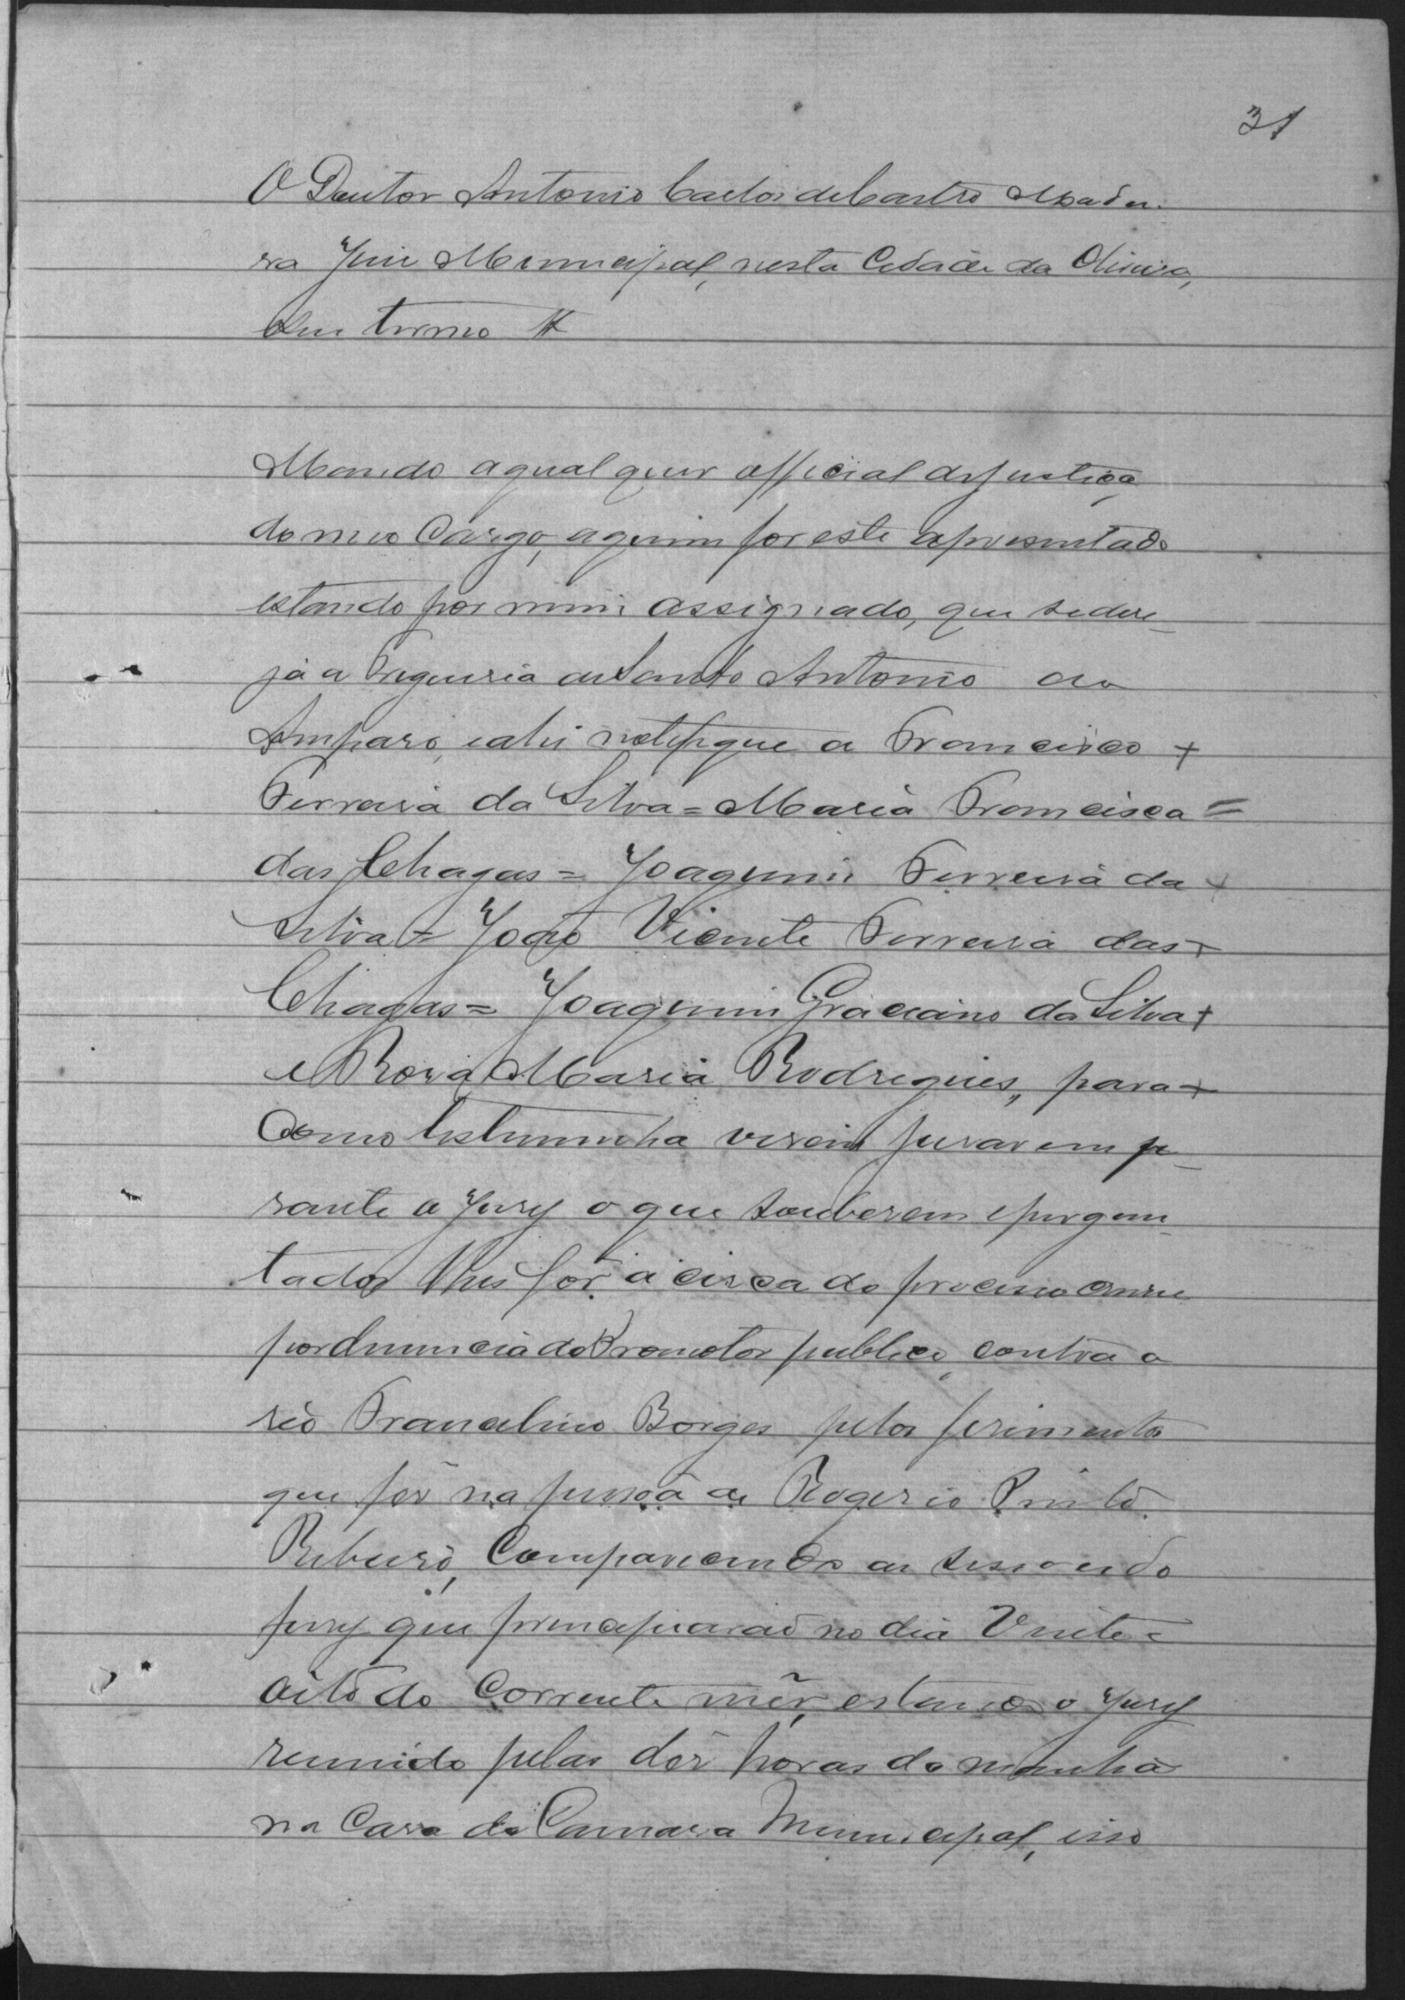 31
O Doutor Antonio Carlos de Castro Madu
ra Juis Municipal, nesta Cidade da Oliveira,
Seu termo #
Mando a qual quer official de justiça
do meu Cargo, a quem for este apresentado
estando por mim assignado, que se dere
ja a Freguesia de Santo Antonio do
Amparo, e ahi notifique a Francisco +
Ferreira da Silva = Maria Francisca =
das Chagas = Joaquim Ferreira da +
Silva = João Vicente Ferreira das +
Chagas = Joaquim Graciano da Silva +
e Rosa Maria Rodrigues, para +
Como testeminha virem jurarem pe
rante o Jury o que souberem e pergun
tados lhes for, á cisca do processo crime
por denuncia do Promotor publico, contra o
reo Francelino Borges pelos ferimentos
que fes na pessoa de Rogerio Pinto
Ribeiro, Comparecendo as sessoens do
jury que principiarão no dia Vinte =
oito do Corrente mês, estando o Jury
reunido pelas dés horas da manhã
na Casa da Camara Municipal, isso